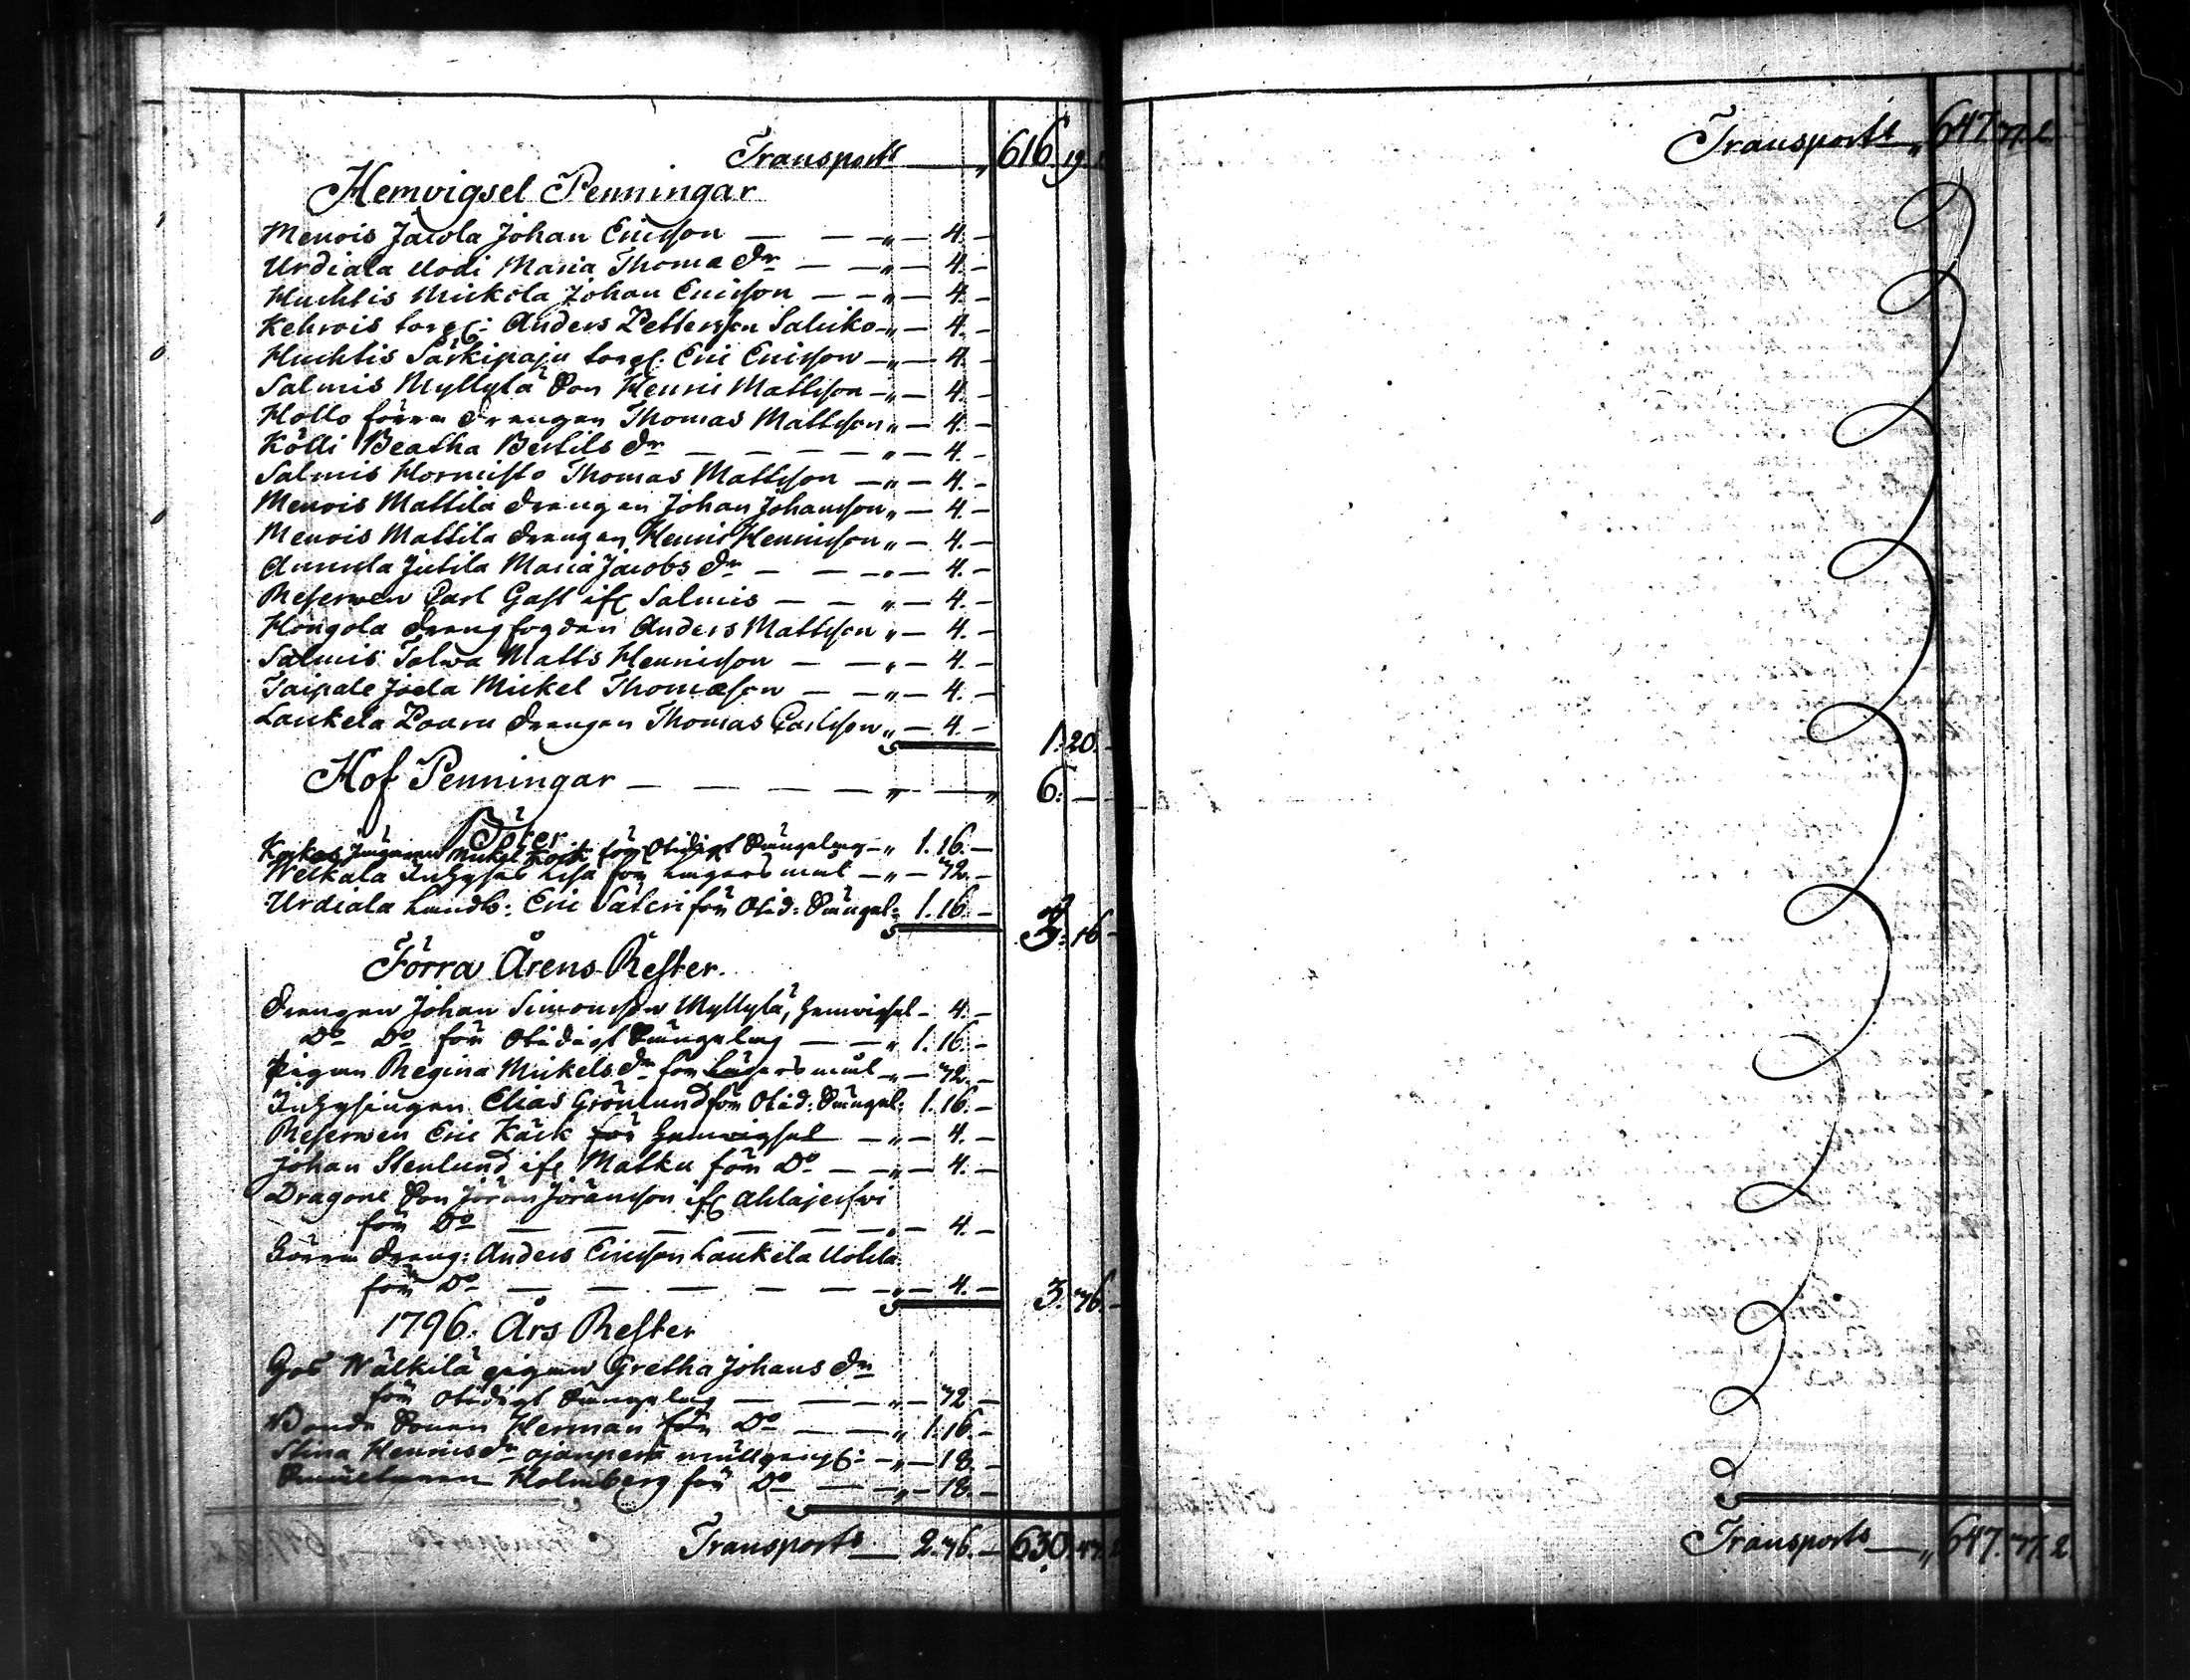 Transport „ 616. 19.
Hemvigsel Penningar
Menois Jacola Johan Ericsson — — „ — 4. —
Urdiala Uodi Maria Thoma dr — — „ — 4. —
Huhtis Mickola Johan Ericsson — — „ — 4. —
Kehrois torp: Anders Pettersson Saluiko — „ — 4. —
Huhtis Särkipaju torp: Eric Ericsson — „ — 4. —
Salmis Myllylä Son Henric Mattsson — „ — 4. —
Hollo förra drengen Thomas Mattsson „ — 4. —
Kölli Beatha Bertils dr — — — — „ — 4. —
Salmis Hormisto Thomas Mattsson — „ — 4. —
Menois Mattila drengen Johan Johansson „ — 4. —
Menois Mattila drengen Henric Henricsson „ — 4. —
Annula Jutila Maria Jacobs dr — — „ — 4. —
Reserven Carl Gast ifr Salmis — — „ — 4. —
Hongola drengfogden Anders Mattsson „ — 4. —
Salmis Talwa Matts Henricsson — — „ — 4. —
Taipale Joela Mickel Thomasson — — „ — 4. —
Laukela Paavu drengen Thomas Carlsson „ — 4. —
1. 20. —
Hof Penningar — — — — — „ — „ 6. —
Böter
Koikos Mickel Koik för Otidigt Sängelag — „ 1. 16. —
Welkala Inhyses Lisa för Lägersmål — „ — 72. —
Urdiala Landb: Eric Säteri för Otid: Sängel: 1. 16. —
3. 16 —
Förra Årens Rester.
Drengen Johan Simonsson Myllylä, Hemvigsel — 4. —
Do Do för Otidigt Sängelag — — „ 1. 16. —
Pigan Regina Mickels dr för Lägersmål — „ — 72. —
Inhysingen Elias Grönlund för Otid: Sängel: 1. 16. —
Reserven Eric Käck för Hemvigsel — „ — 4. —
Johan Stenlund ifr Matku för Do — — „ — 4. —
Dragone Son Jöran Jöransson ifr Ahlajerfvi
för Do — — — — — — „ — 4. —
Förra dreng: Anders Ericsson Laukela Uotila
för Do — — — — — — „ — 4. —
3. 76. —
1796. Års Rester
Hos Wälkilä pigan Gretha Johans dr
för Otidigt Sängelag — — — „ — 72 —
Bonde Sonen Herman för Do — — „ 1. 16. —
Stina Henrics dr — „ — 18. —
Holmberg för Do — — „ — 18. —
Transport — 2. 76. — 630. 47.
Transport „ 647. 77. 2.
Transport — „ 647. 77. 2.